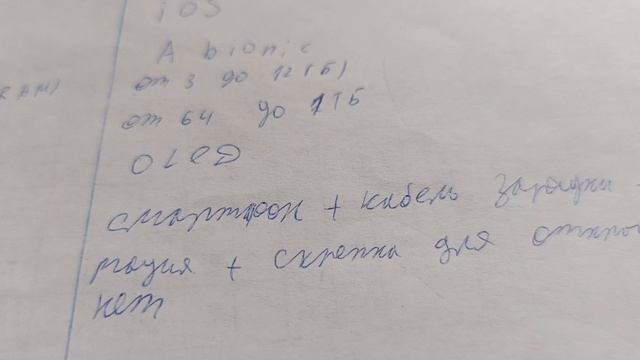 iOS
A bionic
RAM) от 3 до 12 ГБ)
от 64 до 1ТБ
OLED
смартфон + кабель зарядки
тация + скрепка для откро
нет